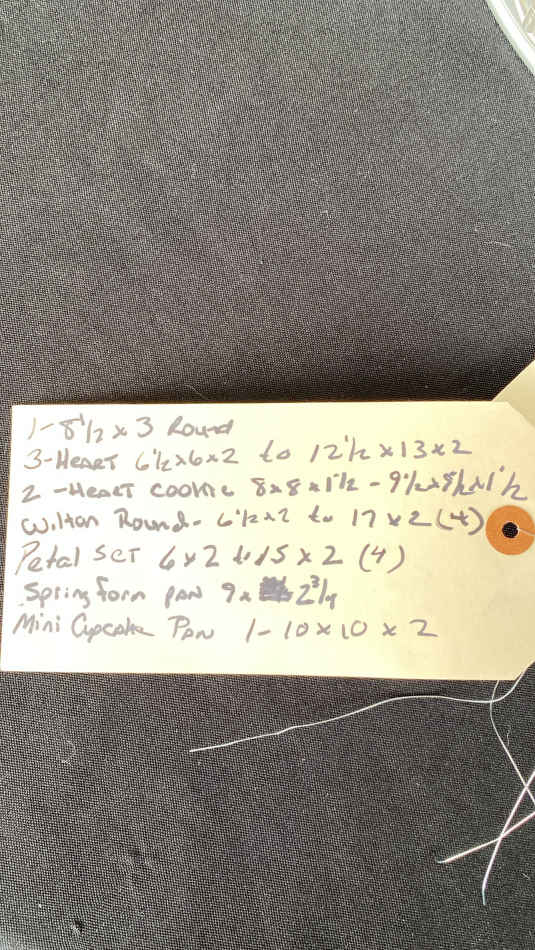 1-8 1/2 x 3 Round
3-Heart 6 1/2 x 6 x 2 to 12 1/2 x 13 x 2
2 -Heart cookie 8 x 8 x 1 1/2 - 9 1/2 x 8 1/2 x 1 1/2
Wilton Round- 6 1/2 x 2 to 17 x 2 (4)
Petal Set 6 x 2 to 15 x 2 (4)
Spring form pan 9 x 2 3/4
Mini Cupcake Pan 1-10 x 10 x 2